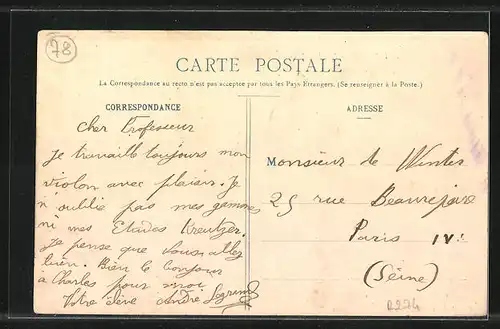 78
CARTE POSTALE
La Correspondance au recto n'est pas acceptée par tous les Pays Étrangers. (Se renseigner à la Poste.)
CORRESPONDANCE
Cher Professeur
Je travaille toujours mon
violon avec plaisir. Je
n oublie pas mes gammes
ni mes Etudes Kreutzer.
Je pense que vous allez
bien. Bien le bonjour
à Charles pour moi
Votre élève André Legrand
ADRESSE
Monsieur de Winter
25 rue Beaurepaire
Paris
(Seine)